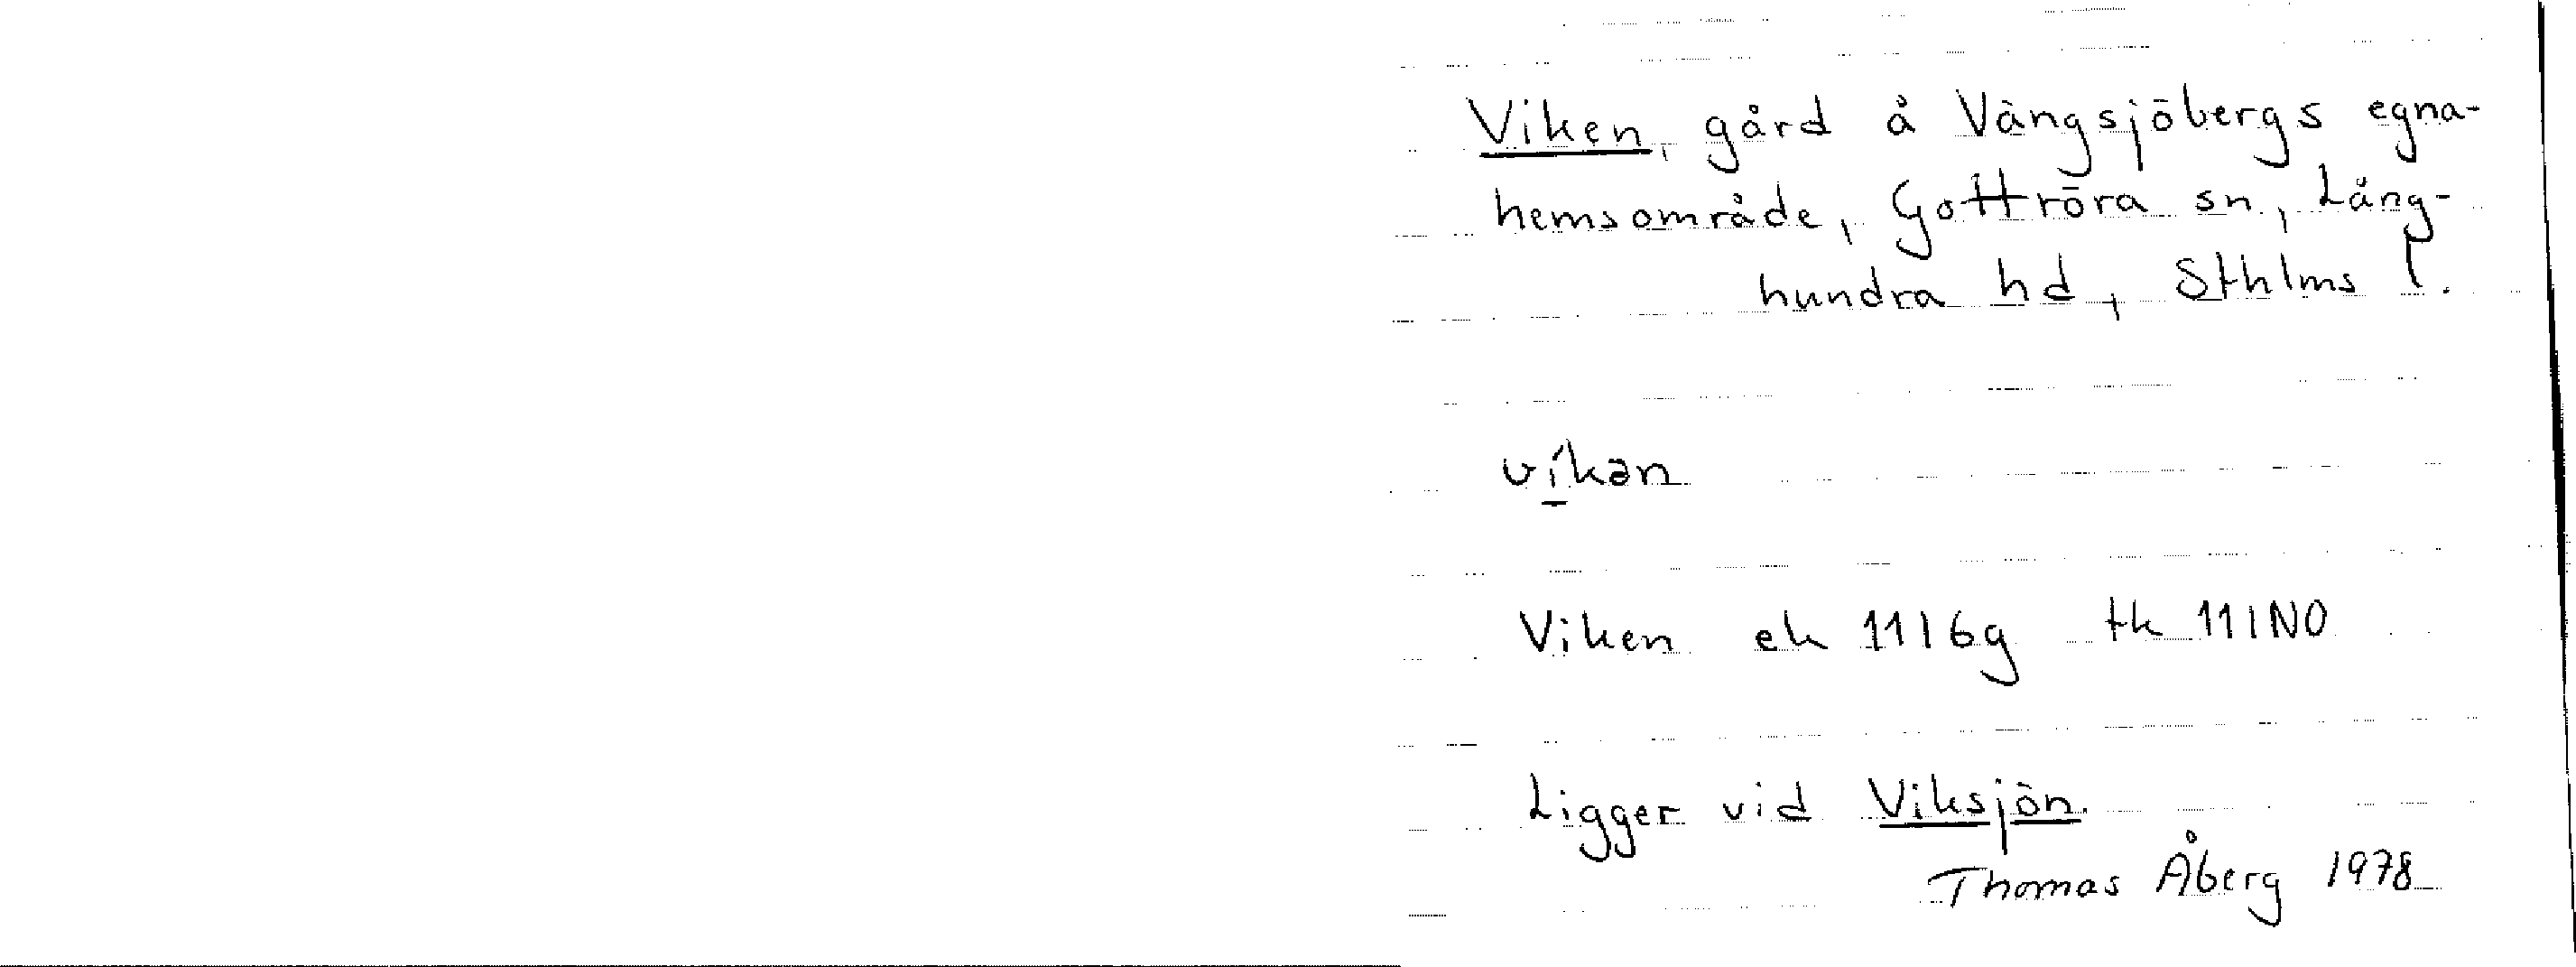 Viken, gård å Vängsjöbergs egna-
hemsområde, Gottröra sn, Lång-
hundra hd, Sthlms l.
ví̱kən
Viken ek 11I6g tk 11INO
Ligger vid Viksjön.
Thomas Åberg 1978